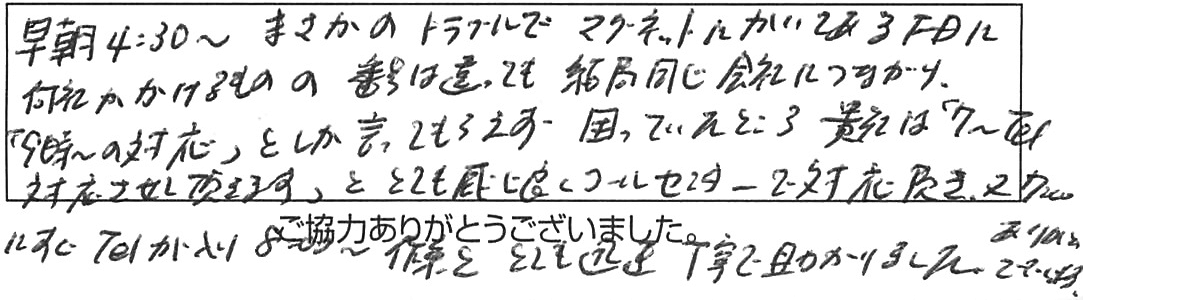 早朝4:30～ まさかのトラブルで マグネットにかいてあるFDに
何社かかけるものの 番号は違っても 結局同じ会社につながり、
「9時～の対応」としか言ってもらえず 困っていたところ 貴社は「7～Tel
対応させて頂きます」と とても感じ良くコールセンターで対応頂き、又 7:00
にすぐTelが入り 8:00～作業と とても迅速 丁寧で助かりました。ありがとう
ございます。
ご協力ありがとうございました。